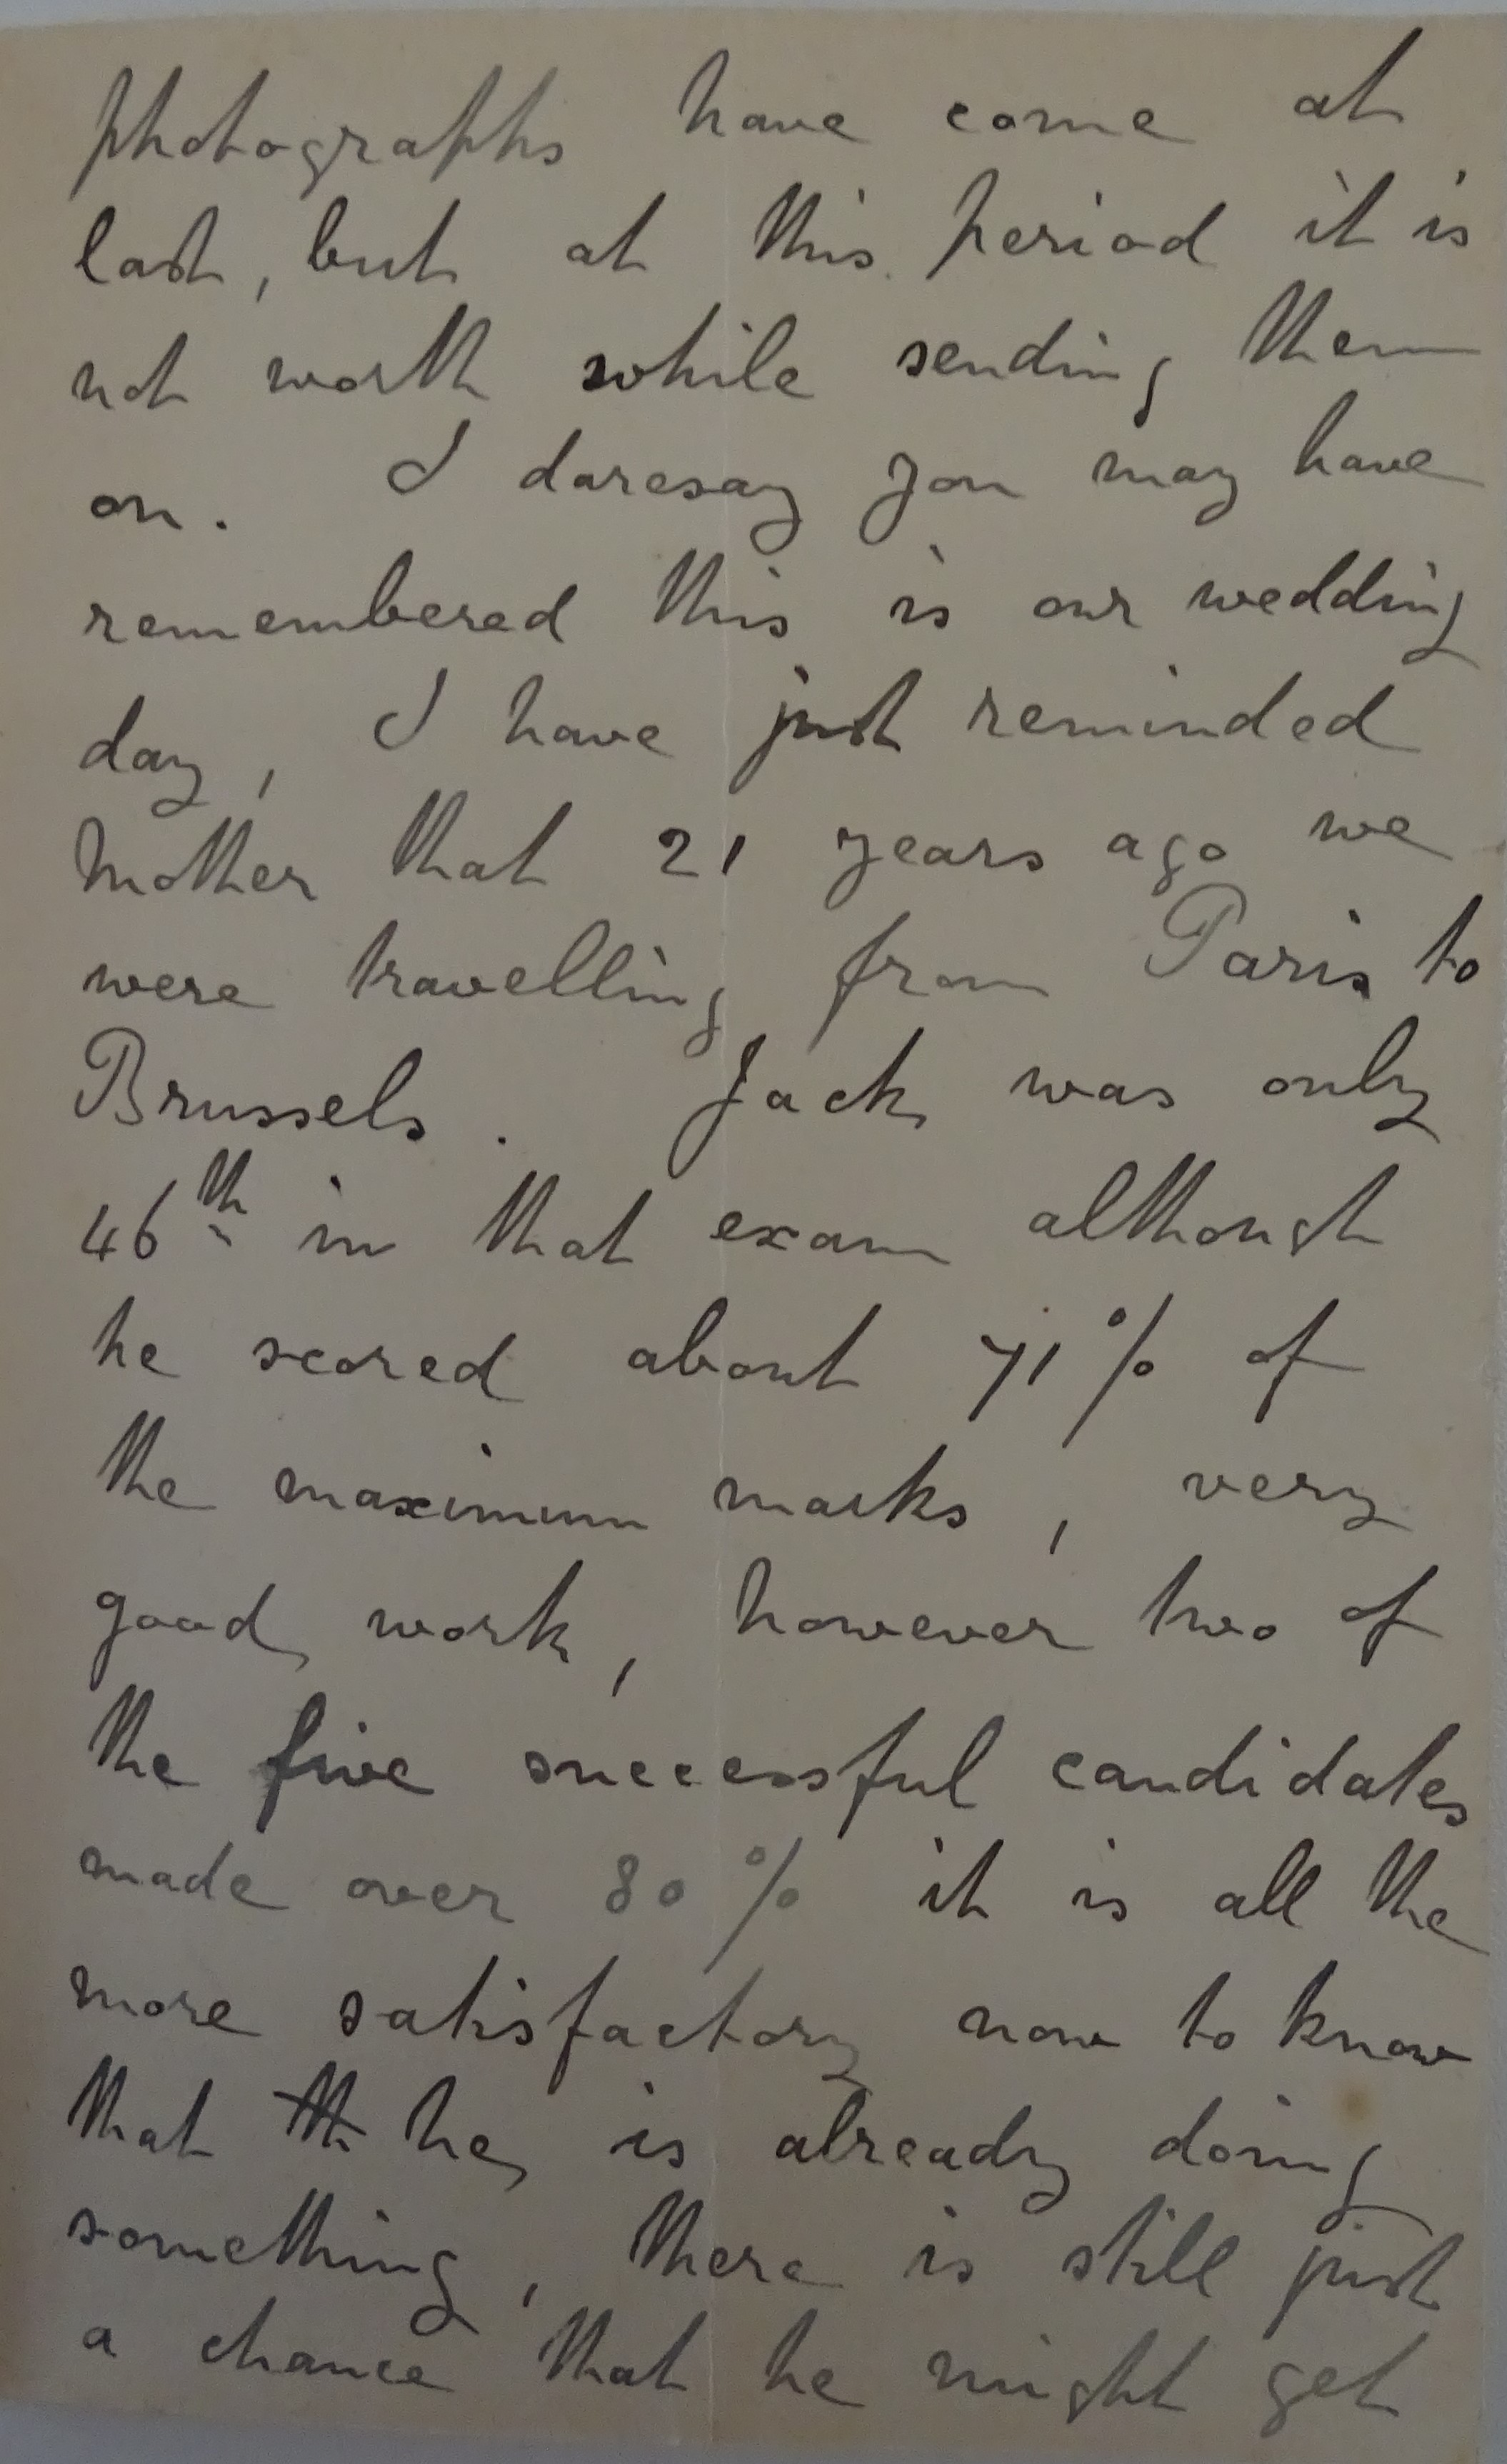 photographs have come at
last, but at this period it is
not worth while sending them
on. I daresay you may have
remembered this is our wedding
day, I have just reminded
mother that 21 years ago we
were travelling from Paris to
Brussels. Jack was only
46th in that exam although
he scored about 71% of
the maximum marks, very
good work, however two of
the five successful candidates
made over 80% it is all the
more satisfactory now to know
that th he is already doing
something, there is still just
a chance that he might get